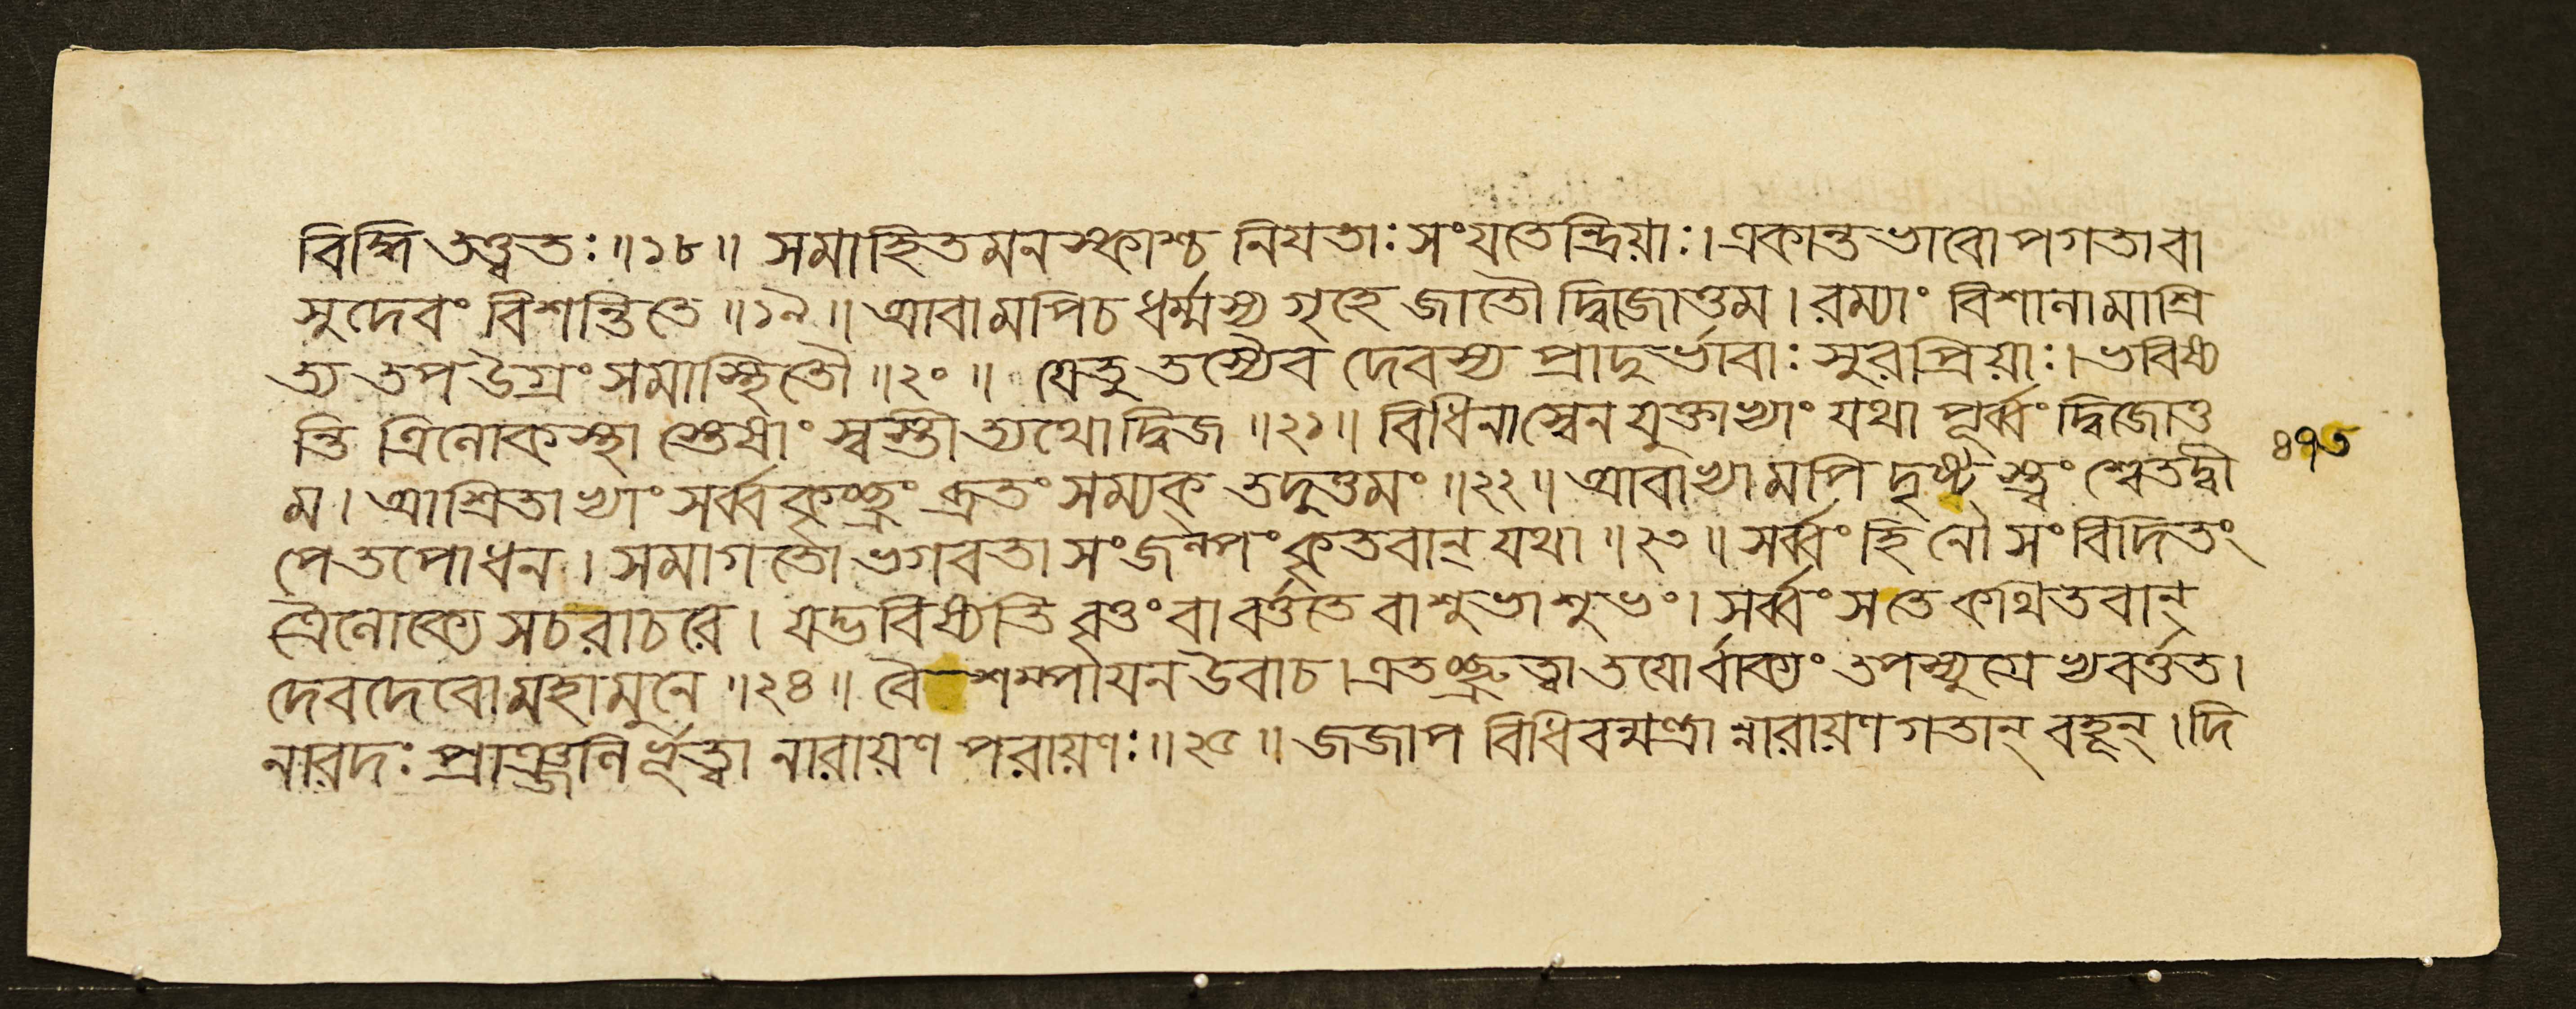 বিদ্ধি তত্ত্বতঃ ॥১৮॥ সমাহিতমনস্কাশ্চ নিযতাঃ সংযতেন্দ্রিয়াঃ। একান্তভাবোপগতা বা
সুদেবং বিশন্তি তে ॥১৯॥ আবামপি চ ধর্ম্মস্য গৃহে জাতৌ দ্বিজোত্তম। রম্যাং বিশালামাশ্রি
ত্য তপ উগ্রং সমাস্থিতৌ ॥২০॥ যেতু তস্যৈব দেবস্য প্রাদুর্ভাবাঃ সুরপ্রিয়াঃ। ভবিষ্য
ন্তি ত্রিলোকস্থা স্তেষাং স্বস্তীত্যথো দ্বিজ ॥২১॥ বিধিনা স্বেন যুক্তাভ্যাং যথা পূর্ব্বং দ্বিজোত্ত
ম। আশ্রিতাভ্যাং সর্ব্বকৃচ্ছ্রং ব্রতং সম্যক্ তদুত্তমং ॥২২॥ আবাভ্যামপি দৃষ্টস্ত্বং শ্বেতদ্বী
পে তপোধন। সমাগতো ভগবতা সংজল্পং কৃতবান্ যথা ॥২৩॥ সর্ব্বং হি নৌ সংবিদিতং
ত্রৈলোক্যে সচরাচরে। যদ্ভবিষ্যতি বৃত্তং বা বর্ত্ততে বা শুভাশুভং। সর্ব্বং স তে কথিতবান্
দেবদেবো মহামুনে ॥২৪॥ বৈশম্পাযন উবাচ। এতচ্ছ্রুত্বা তযোর্বাক্যং তপস্যুগ্রেভ্যবর্ত্তত।
নারদঃ প্রাঞ্জলির্ভূত্বা নারায়ণপরায়ণঃ ॥২৫॥ জজাপ বিধিবন্মন্ত্রান্নারায়ণগতান্ বহূন্। দি
৪৭৩